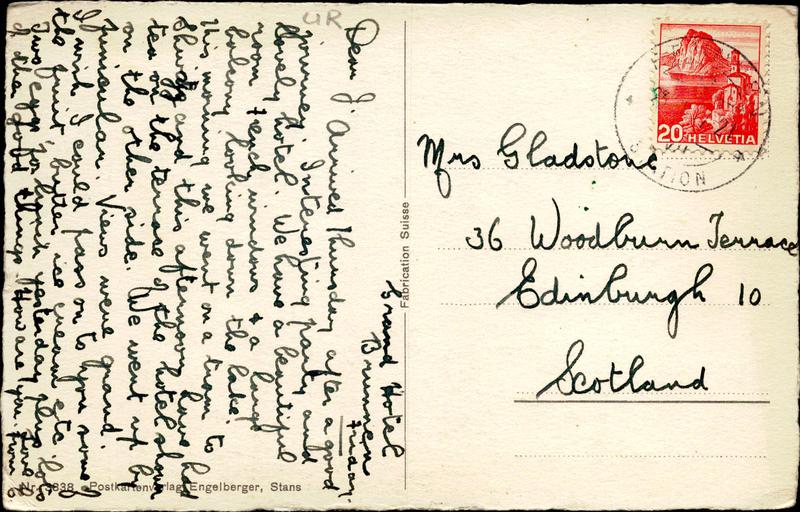 UR
Grand Hotel
Brunnen
Friday.
Dear J. Arrived Thursday after a good
journey. Interesting party and
lovely hotel. We have a beautiful
room French windows & a large
balcony looking down the lake.
This morning we went on a tram to
and this afternoon have had
tea on the terrace of the hotel shown
on the other side. We went up by
funicular. Views were grand.
I wish I could pass on to you some of
the fruit butter ice cream etc.
Two eggs for lunch yesterday plus lots
of the good things. How are you. Love
from
Nr. 3838 Postkartenverlag Engelberger, Stans
Fabrication Suisse
20 HELVETIA
STATION
Mrs Gladstone
36 Woodburn Terrace
Edinburgh 10
Scotland